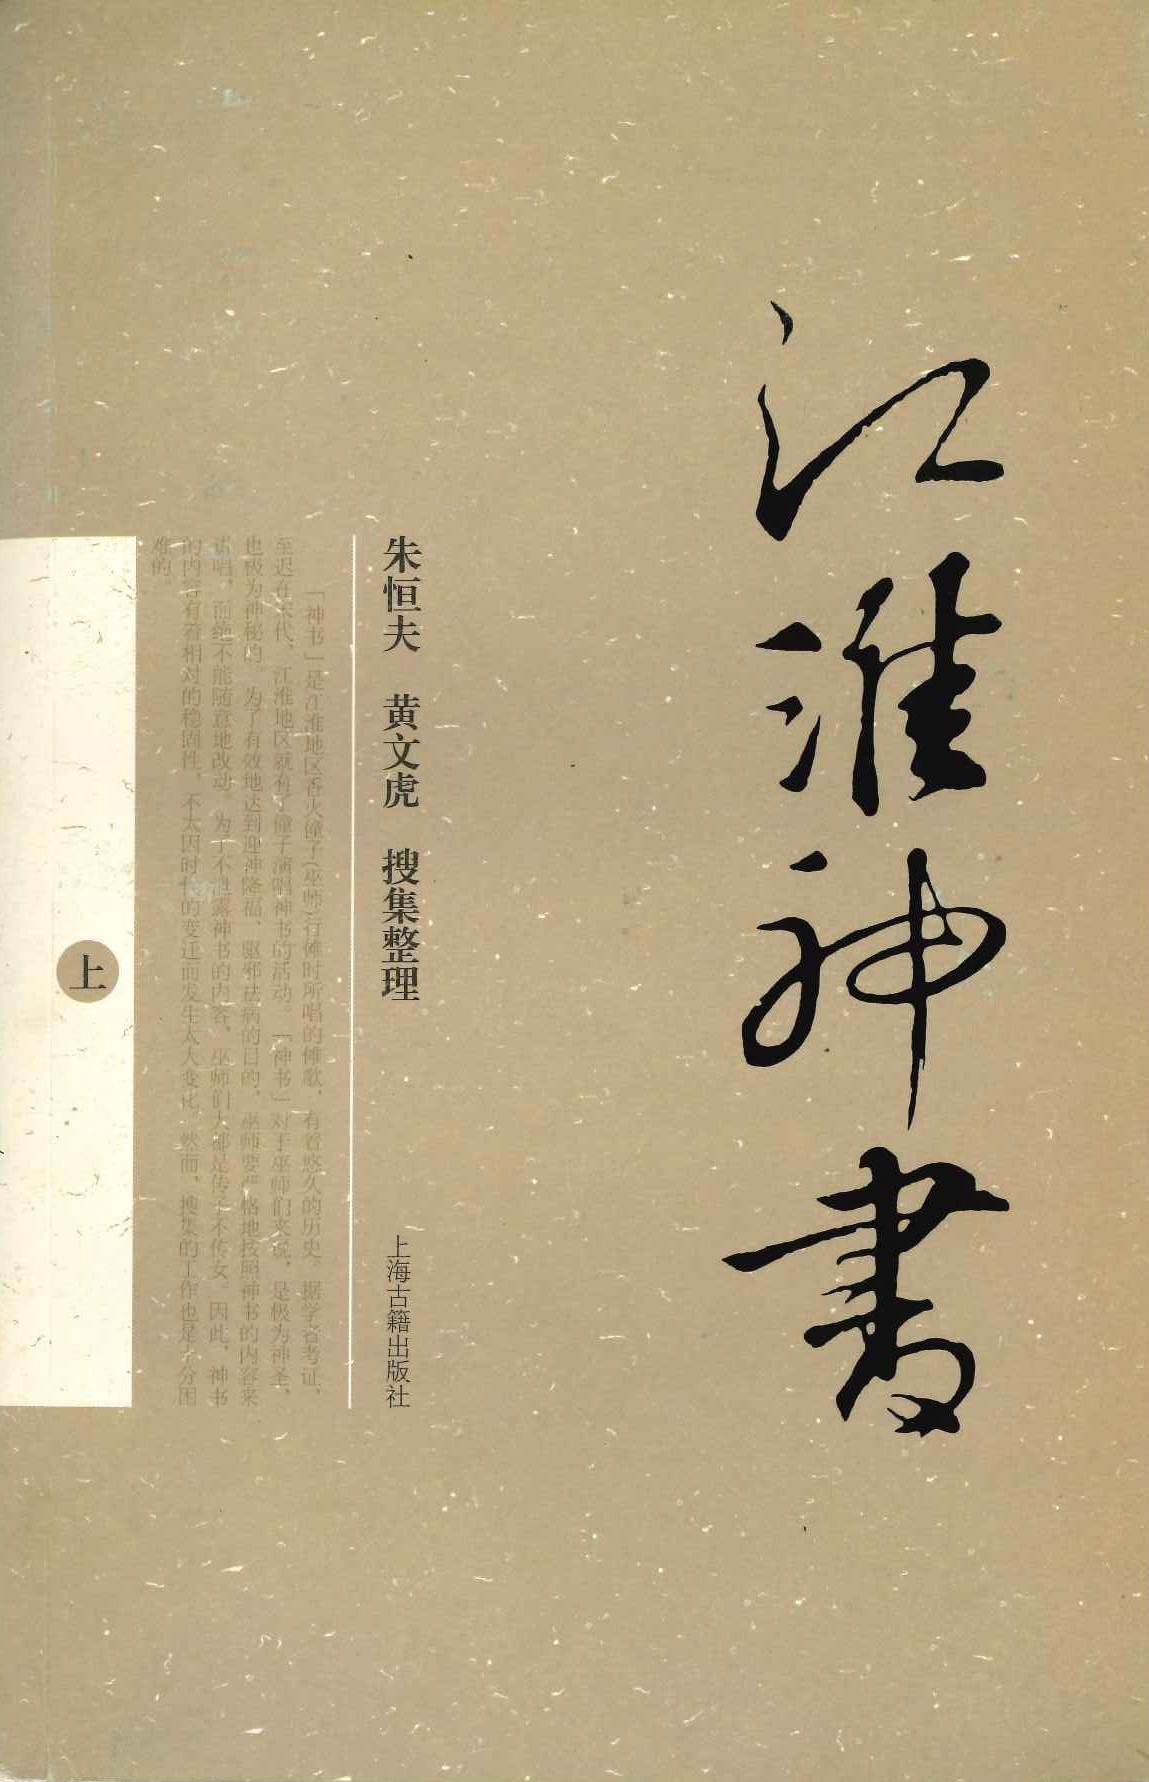 江淮神書
朱恒夫 黄文虎 搜集整理
上海古籍出版社
「神书」是江淮地区香火僮子(巫师)行傩时所唱的傩歌，有着悠久的历史。据学者考证，
至迟在宋代，江淮地区就有了僮子演唱神书的活动。「神书」对于巫师们来说，是极为神圣、
也极为神秘的。为了有效地达到迎神降福、驱邪祛病的目的，巫师要严格地按照神书的内容来
讲唱，而绝不能随意地改动。为了不泄露神书的内容，巫师们大都是传子不传女。因此，神书
的内容有着相对的稳固性，不太因时代的变迁而发生太大变化。然而，搜集的工作也是十分困
难的。
上